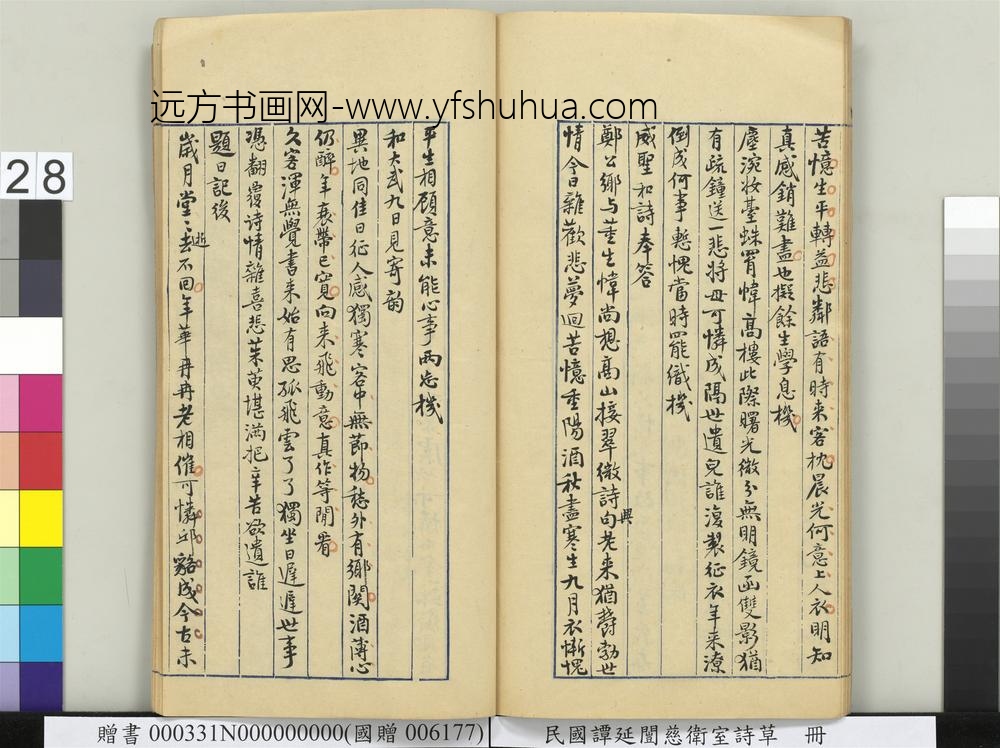 远方书画网-www.yfshuhua.com
28
苦憶生平轉益悲鄰語有時来客枕晨光何意上人衣明知
真感銷難盡也擬餘生學息機
塵涴妝臺蛛罥幃高樓此際曙光微分無明鏡函雙影猶
有疏鐘送一悲將毋可憐成隔世遺兒誰復製征衣年来潦
倒成何事慙愧當時罷織機
威聖和詩奉答
鄭公鄉与董生幃尚想高山接翠微詩句老来猶鬱勃世
興
情今日雜歡悲夢迴苦憶重陽酒秋盡寒生九月衣慚愧
平生相顧意未能心事兩忘機
和大武九日見寄韵
異地同佳日征人感獨寒客中無節物愁外有鄉關酒薄心
仍醉年衰帶已寬向来飛動意真作等閒看
久客渾無覺書来始有思孤飛雲了了獨坐日遲遲世事
憑翻覆詩情雜喜悲茱萸堪滿把辛苦欲遺誰
題日記後
歲月堂堂去不回年華冉冉老相催可憐邱貉成今古未
逝
贈書 000331N000000000(國贈 006177)
民國譚延闓慈衛室詩草 冊